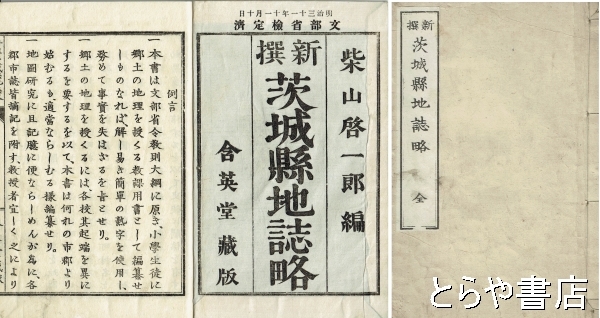 新撰 茨城縣地誌略 全
明治三十一年十一月十日
文部省檢定濟
柴山啓一郎編
新撰
茨城縣地誌略
含英堂藏版
例言
一本書は文部省令敎則大綱に原き、小學生徒に
郷土の地理を授くる敎課用書として編纂せ
しものなれば、解し易き簡單の熟字を使用し、
務めて事實を失はざるを旨とせり。
一郷土の地理を授くるには、各授其起端を異に
するを要するを以て、本書は何れの市郡より
始むるも適當ならしむる樣編纂せり。
一地圖硏究に且記臆に便ならしめんが為に、各
郡市誌皆諭記を附す、敎授者宜しく之により
とらや書店